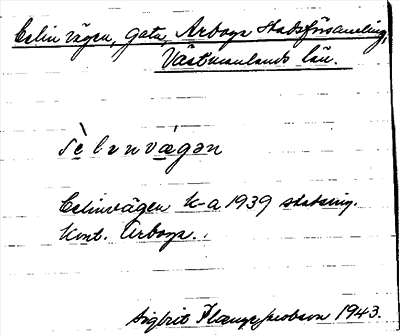 Celinvägen, gata, Arboga Stadsförsamling,
Västmanlands län.
Celinvägen K-a 1939 stadsing.
Kont. Arboga.
Sigbrit Plænge Jacobson 1943.